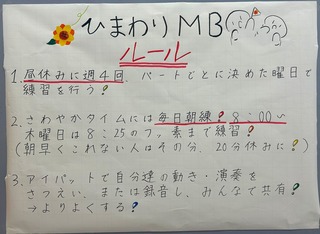 ひまわりMB
ルール
1.昼休みに週4回、パートごとに決めた曜日で
練習を行う!
2.さわやかタイムには毎日朝練! 8:00~
木曜日は8:25のフッ素まで練習!
(朝早くこれない人はその分、20分休みに!)
3.アイパットで自分達の動き・演奏を
さつえい、または録音し、みんなで共有!
→よりよくする!